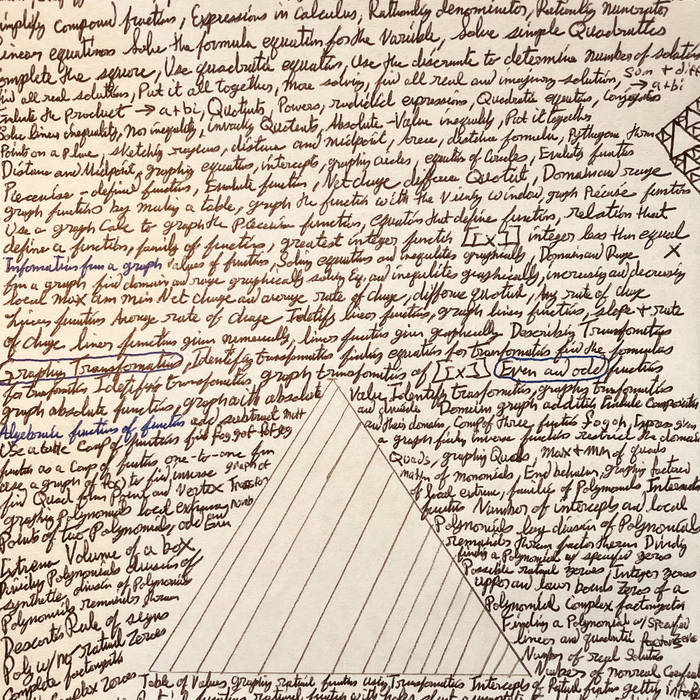 Simplify Compound fractions, Expressions in Calculus, Rationaling denominator, Rationaly Numerator
Linear equations Solve the formula equation for the Variable, Solve simple Quadratics
Complete the square, Use quadratic equation, Use the discriminate to determine number of solutions
find all real solutions, Put it all together, More solving, find all real and imaginary solutions, Sum + diff
Evaluate the Product → a+bi, Quotients, Powers, radical expressions, Quadratic equations, Conjugates → a+bi
Solve linear inequality, Non inequality, involving Quotients, Absolute-Value inequality, Put it together
Points on a Plane, sketching regions, distance and midpoint, Area, distance formula, Pythagorean Thm
Distance and Midpoint, graphing equations, intercepts, graphing circles, equations of Circles, Evaluate functions
Piecewise-defined functions, Evaluate functions, Net change, difference Quotient, Domain and range
graph functions by making a table, graph the function with the Viewing window, graph Piecewise functions
Use a graph Calc to graph the Piecewise functions, equations that define functions, relation that
define a function, family of functions, greatest integer function [[x]] integer less than equal
Information from a graph Values of functions, Solving equations and inequalities graphically, Domain and Range X
from a graph find domain and range graphically solving Eq. and inequalities graphically, increasing and decreasing
local max and min Net change and average rate of change, difference quotient, Avg rate of change
linear functions Average rate of change Identify linear functions, graph linear functions, slope + rate
of change linear function given numerically, linear functions given graphically Describing Transformations
graphing Transformations, Identify transformations finding equations for transformations find the formulas
for transformations Identifying transformations, graph transformations of [[x]] Even and odd functions
graph absolute functions, graph with absolute Value Identify transformations, graphing transformations
Algebraic functions of functions add, subtract mult and divide Domain graph addition Evaluate Composition
Use a table Comp of functions find Fog gof fof gog and their domains, Comp of three functions fogoh, Express given
functions as a Comp of functions one-to-one from a graph find inverse functions restrict the domain
use a graph of f(x) to find inverse graph of Quads, graphing Quads, Max + Min of quads
find Quad from Point and Vertex Transfor matin of monomials, End behavior, graphing factored
graphing Polynomials local extremums Numb of local extrema, families of Polynomials Intermediate
Points of two Polynomials, odd and Even functions Number of intercepts and local
Extrema Volume of a box Polynomials long division of Polynomials
Dividing Polynomials division of remainder theorem factor theorem Dividing
synthetic division of Polynomials finding a Polynomial w/ specified zeros
Polynomials remainder theorem Possible rational zeroes, Integer zeros
Descartes Rule of signs upper and lower bounds Zeros of a
Poly w/ no rational Zeroes Polynomial Complex factorization
Complete factorization Finding a Polynomial w/ Specified
Complex Zeroes linear and quadratic factors
Number of real Solutions
Number of nonreal
Table of Values graphing rational functions using Transformations Intercepts of Rational functions